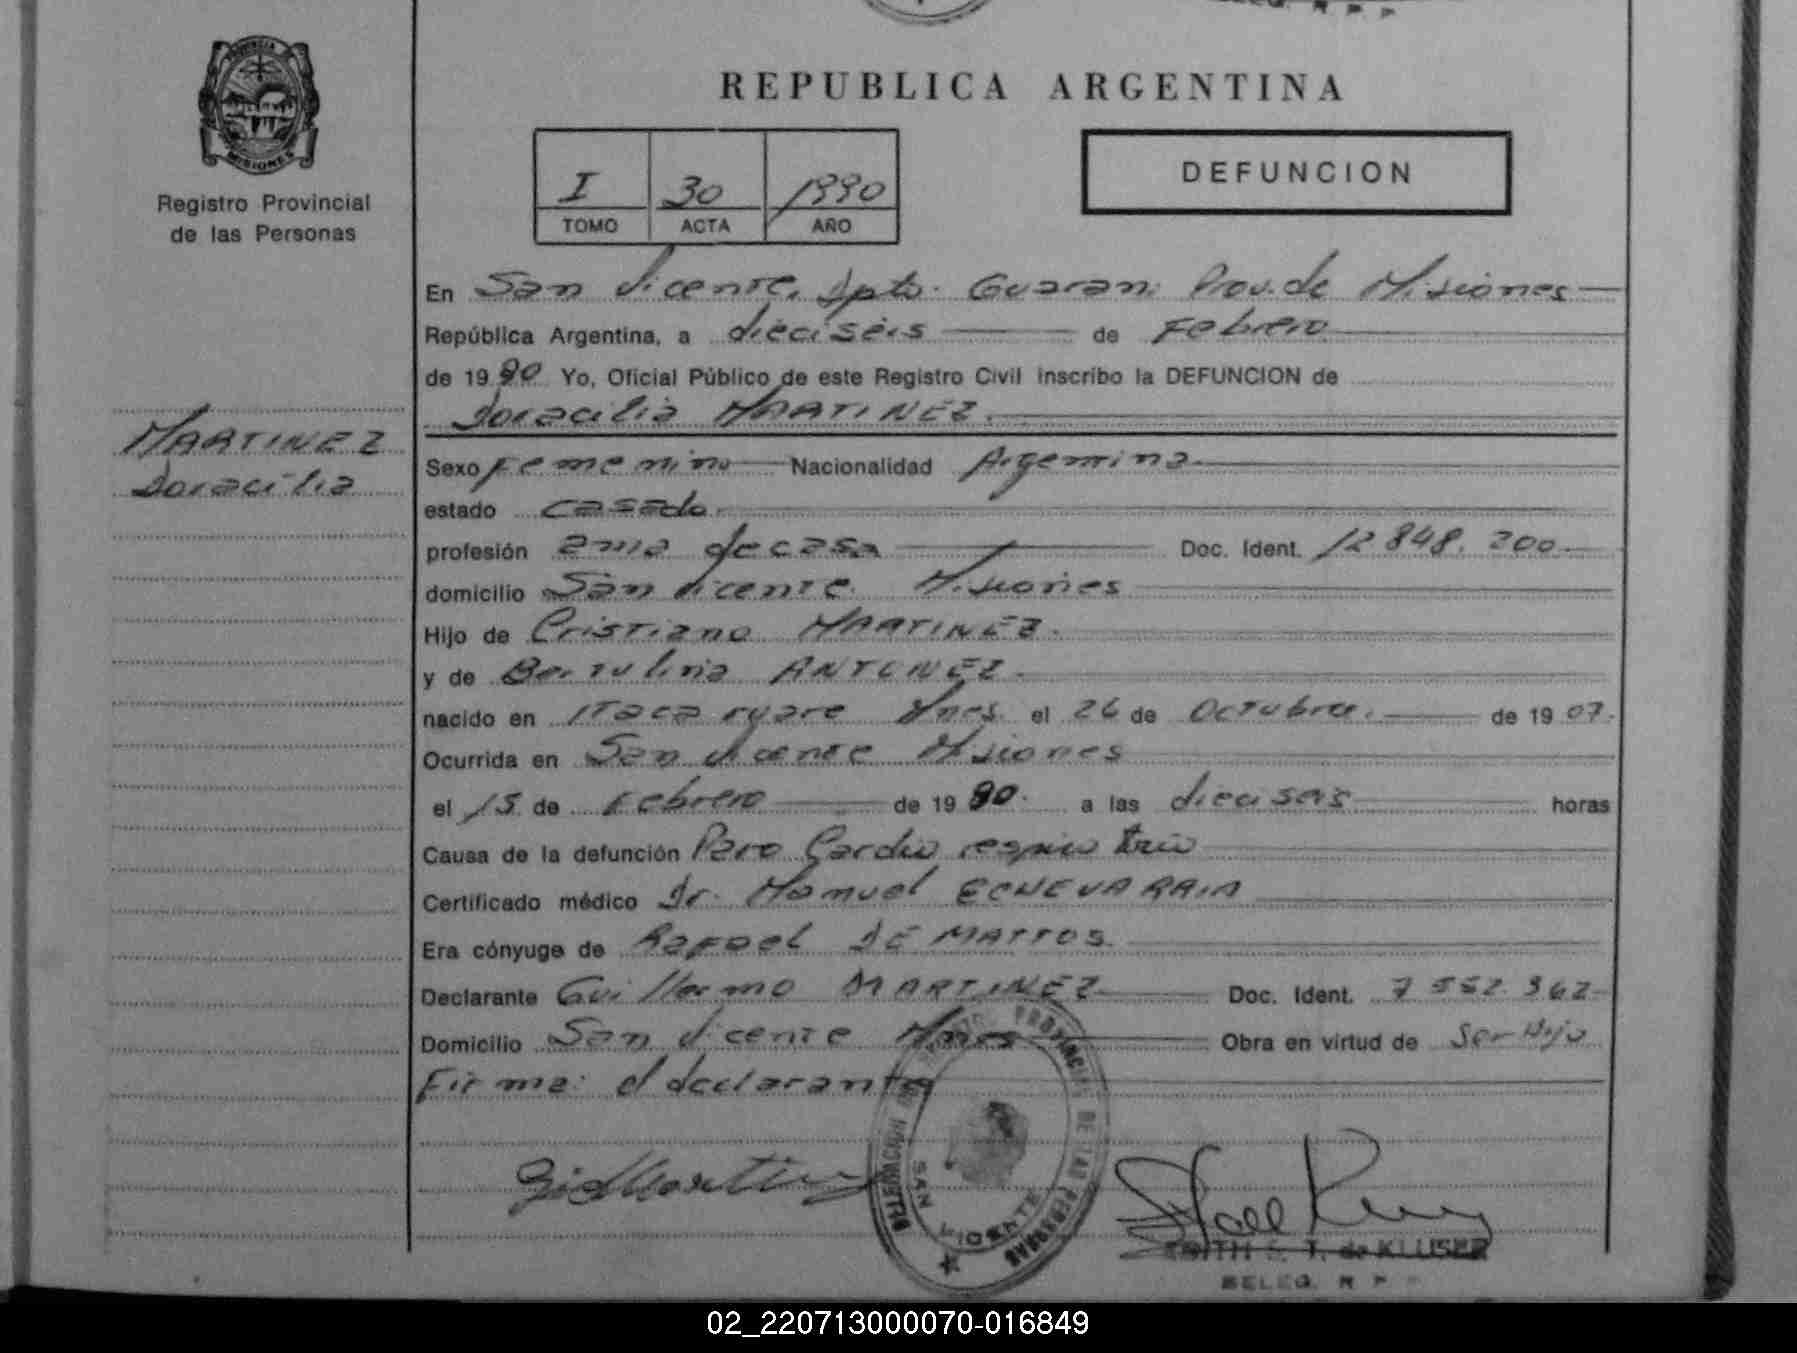 PROVINCIA
MISIONES
Registro Provincial
de las Personas
MARTINEZ
Doracilia
REPUBLICA ARGENTINA
I 30 1990
TOMO ACTA AÑO
DEFUNCION
En San Vicente, Dpto. Guarani Prov. de Misiones
República Argentina, a dieciseis de Febrero
de 1990 Yo, Oficial Público de este Registro Civil inscribo la DEFUNCION de
Doracilia MARTINEZ.
Sexo Femenino Nacionalidad Argentina
estado casada
profesión ama de casa Doc. Ident. 12.848.200
domicilio San Vicente Misiones
Hijo de Cristiano MARTINEZ.
y de Bertulina ANTUNEZ
nacido en Itacaruare Mnes. el 26 de Octubre. de 1907.
Ocurrida en San Vicente Misiones
el 15 de Febrero de 1990. a las dieciseis horas
Causa de la defunción Paro Cardio respiratorio
Certificado médico Dr. Manuel ECHEVARRIA
Era cónyuge de Rafael DE MATTOS.
Declarante Guillermo MARTINEZ Doc. Ident. 7.552.362
Domicilio San Vicente Mnes Obra en virtud de Ser Hijo
Firma: el declarante
DELEGACION PROVINCIAL DE LAS PERSONAS
SAN VICENTE
T. de KLUSER
DELEG. R P P
02_220713000070-016849